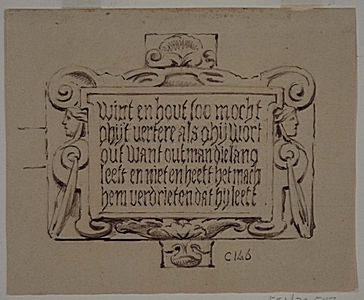 wint en hout soo mocht
ghijt vertere als ghij wort
out want out man die lang
leeft en niet en heeft het mach
hem verdrieten dat hij leeft
C 146